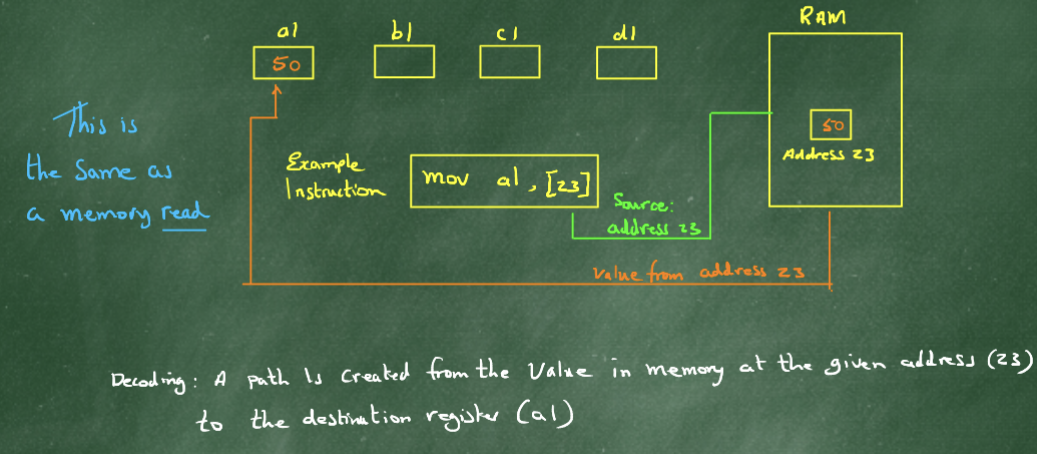 al bl cl dl RAM
50
50
Address 23
This is
the Same as
a memory read
Example
Instruction
mov al, [23]
Source:
address 23
Value from address 23
Decoding: A path Is Created from the Value in memory at the given address (23)
to the destination register (al)